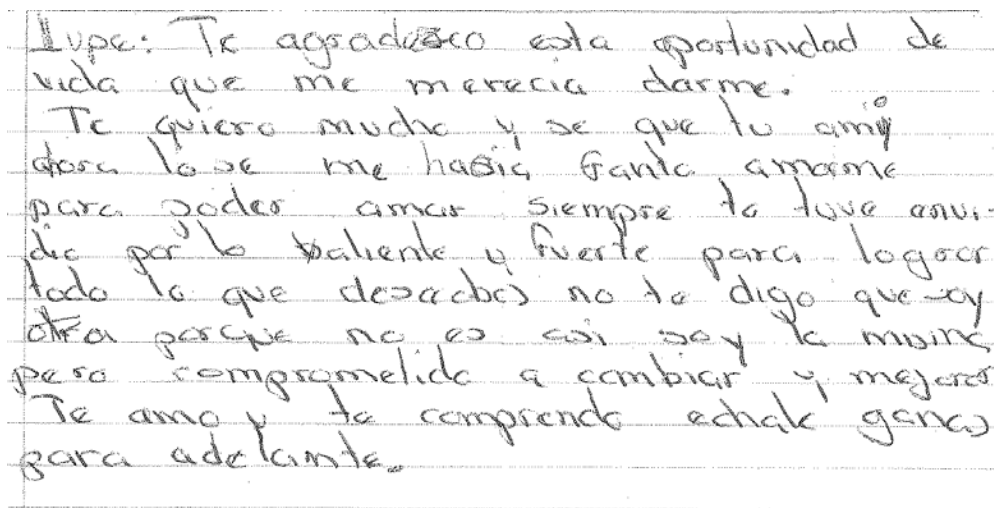 Lupe: Te agradesco esta oportunidad de
vida que me merecia darme.
Te quiero mucho y se que tu ami
ahora lo se me hasia fanta amarme
para poder amar siempre te tuve envi-
dia por lo valiente y fuerte para lograr
todo lo que deseabas no te digo que soy
otra porque no es asi soy la misma
pero comprometida a cambiar y mejorar
Te amo y te comprendo echale ganas
para adelante.